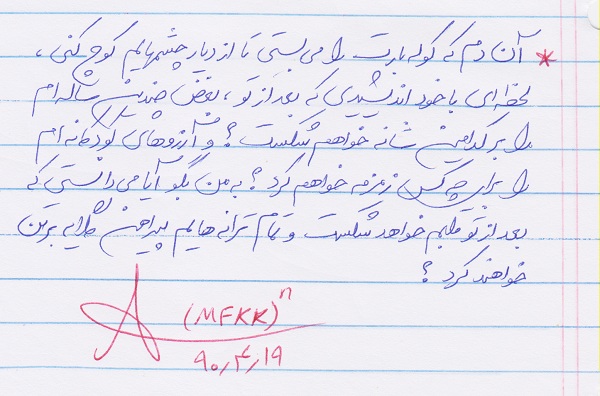 * آن دم که کوله بارت را می بستی تا از دیار چشمهایم کوچ کنی ،
لحظه ای با خود اندیشیدی که بعد از تو ، بغض چندین ساله ام
را بر کدامین شانه خواهم شکست ؟ و آرزوهای کودکانه ام
را برای چه کس زمزمه خواهم کرد ؟ به من بگو آیا می دانستی که
بعد از تو قلبم خواهد شکست و تمام ترانه هایم پیراهن گلایه بر تن
خواهند کرد ؟
(MFKK)ⁿ
۹۰٫۴٫۱۹